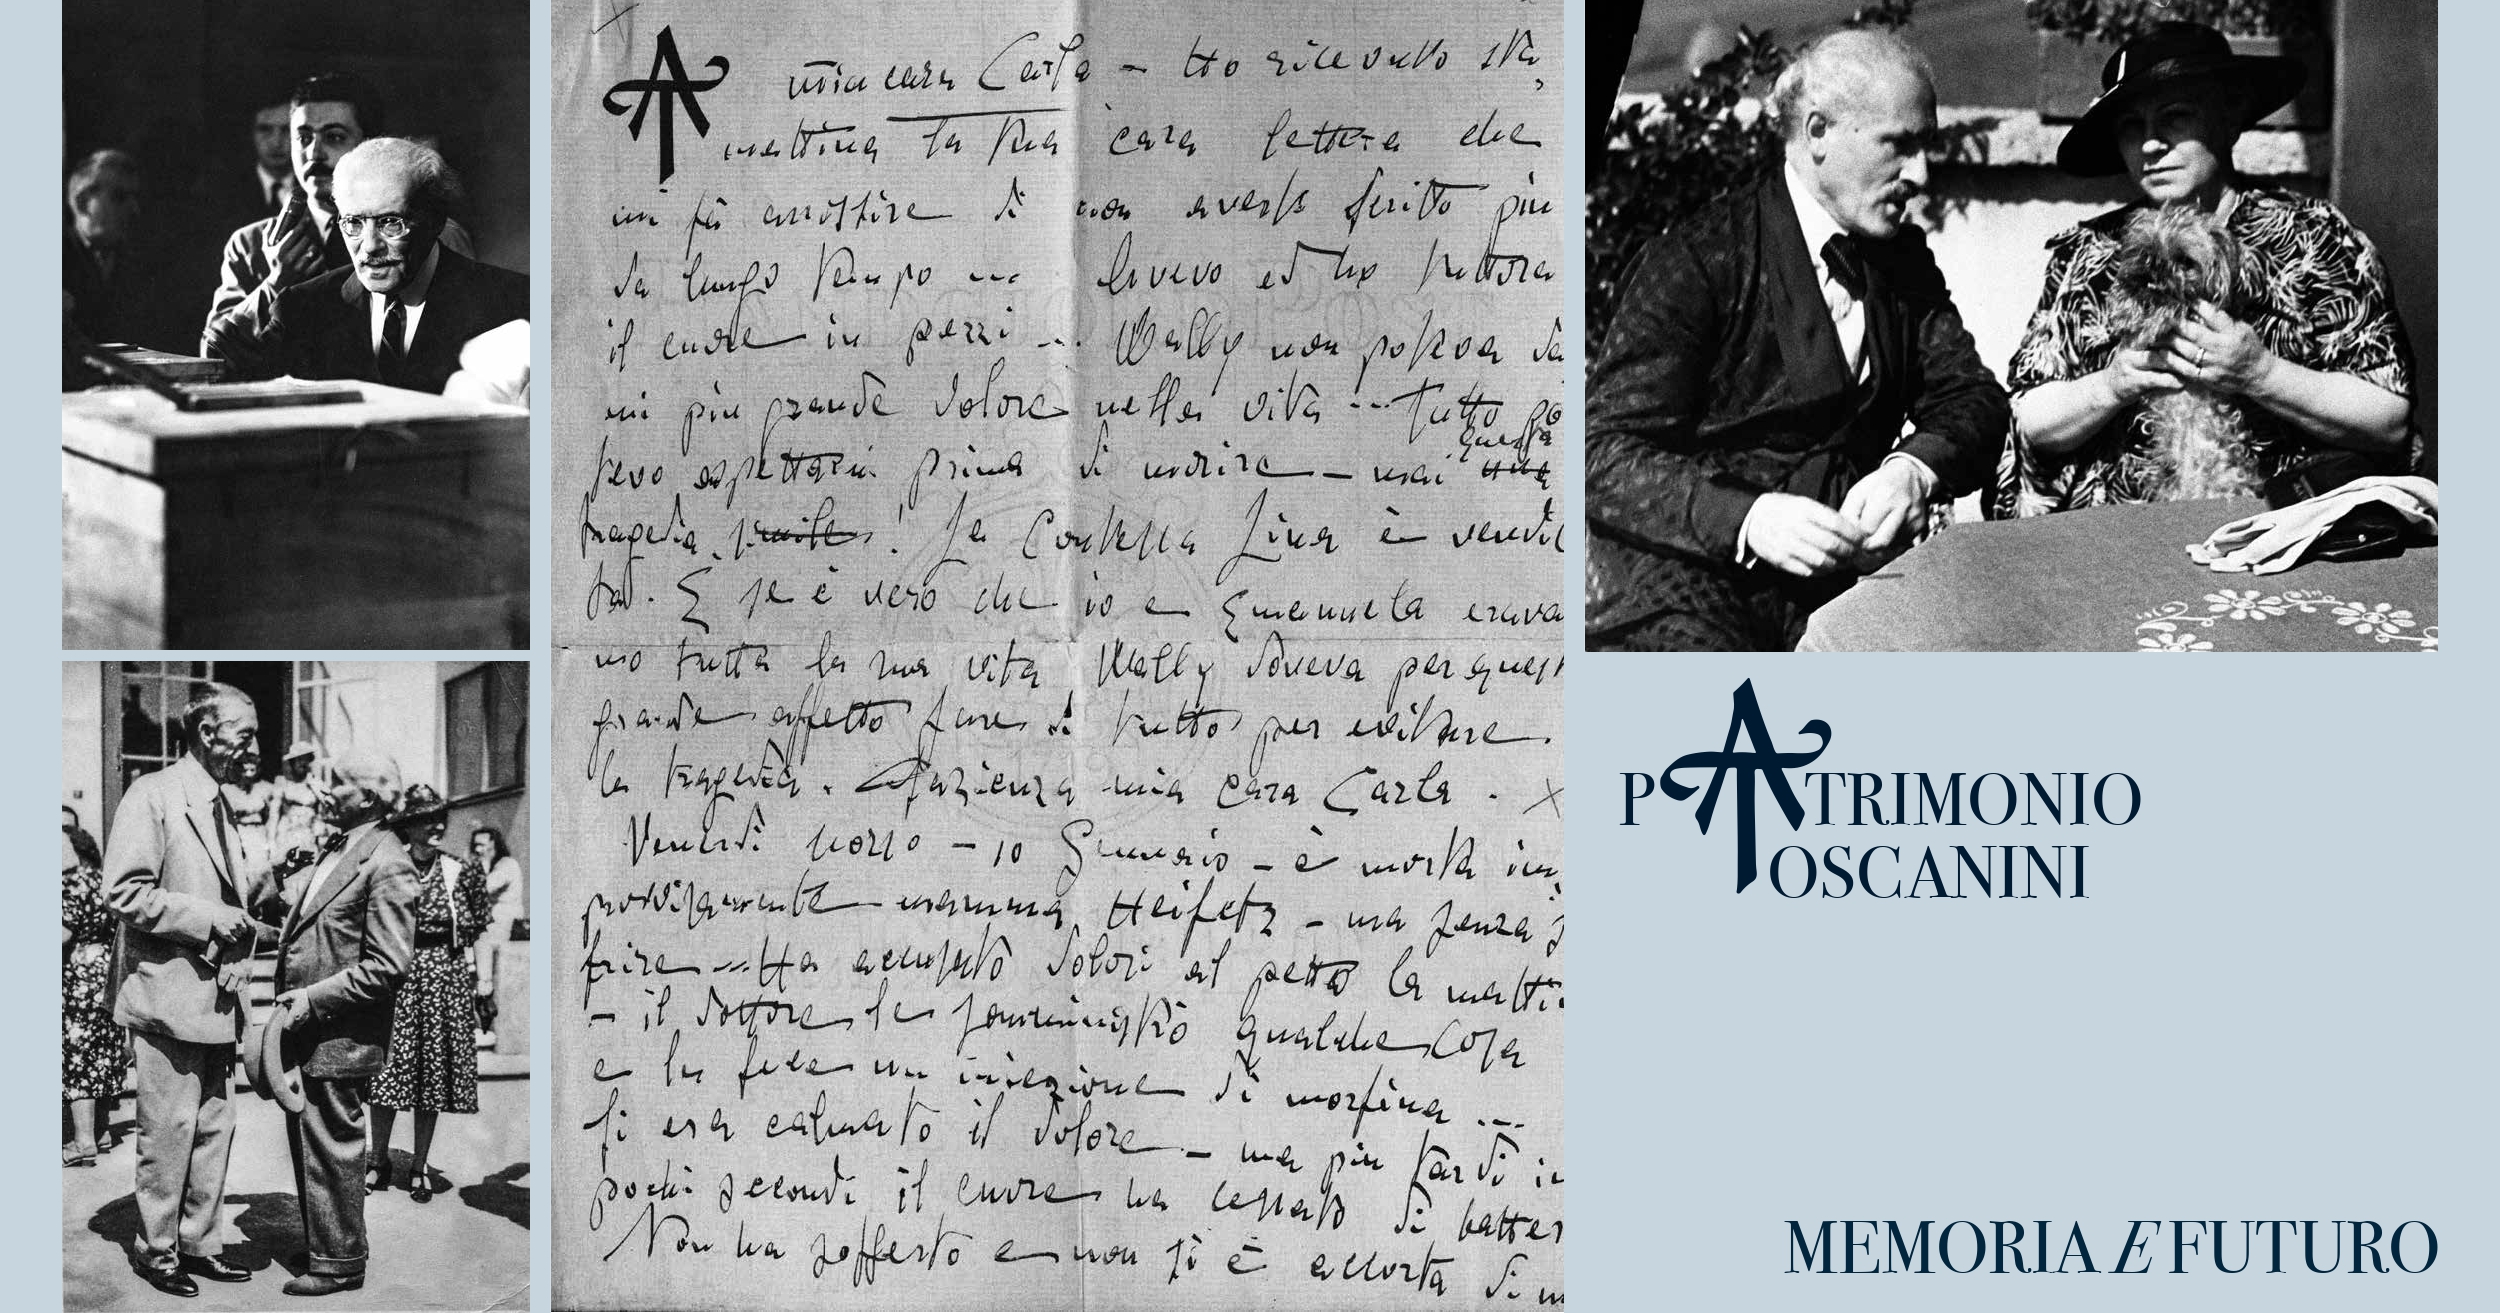 mia cara Carla – Ho ricevuto sta-
mattina la tua cara lettera che
mi fa arrossire di non averti scritto più
da lungo tempo ... Avevo ed ho tuttora
il cuore in pezzi ... Wally non poteva dar
mi più grande dolore nella vita ... Tutto po
questa
tevo aspettarmi prima di morire – mai una
tragedia simile! La Contessa Lina è vendica
ta. E se è vero che io e Emanuela erava
mo tutta la sua vita Wally doveva per questo
grande affetto fare di tutto per evitare
la tragedia. Pazienza mia cara Carla.
Venerdì scorso – 10 Gennaio – è morta im
provvisamente mamma Heifetz – ma senza
frire ... Ha accusato dolori al petto la matti
– il dottore le somministrò qualche cosa
e le fece un iniezione di morfina ...
si era calmato il dolore – ma più tardi in
pochi secondi il cuore ha cessato di batter
Non ha sofferto e non si è accorta di
PATRIMONIO
TOSCANINI
MEMORIA E FUTURO